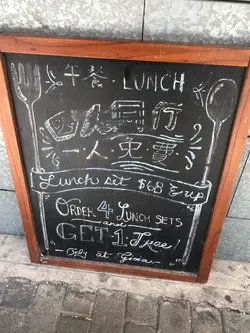 午餐·LUNCH
四人同行
一人免費
Lunch set $68 & up
ORDER 4 LUNCH SETS
and
GET 1 Free!
Only at